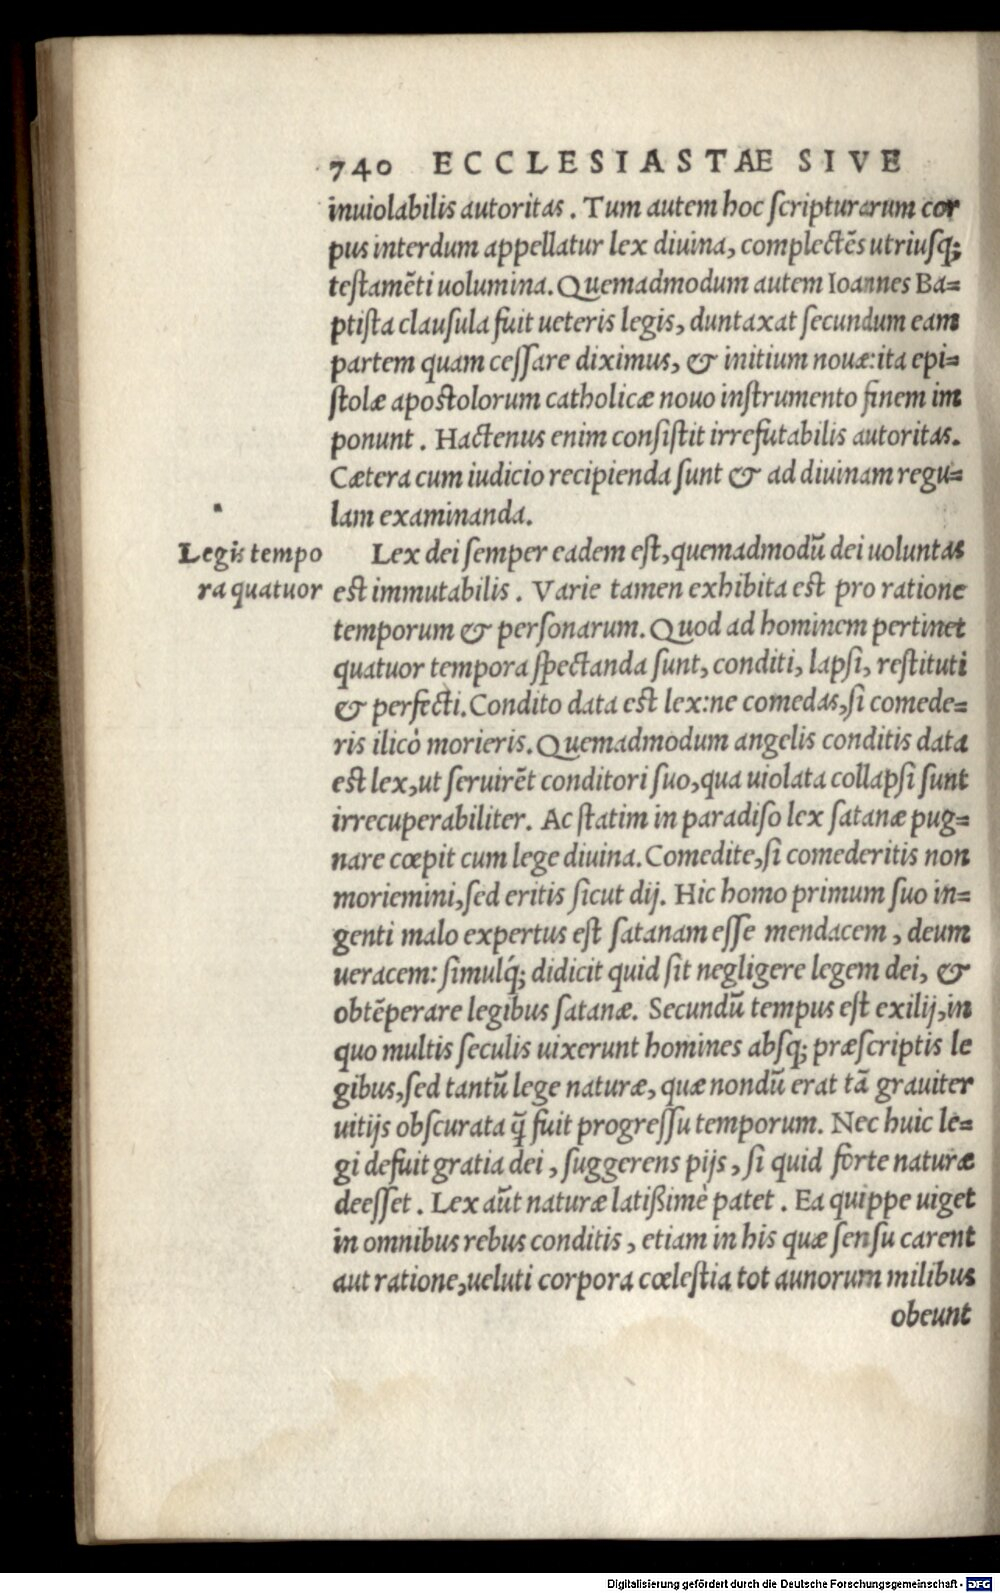 740 ECCLESIASTAE SIVE
inuiolabilis autoritas. Tum autem hoc scripturarum cor
pus interdum appellatur lex diuina, complectēs utriusq;
testamēti uolumina. Quemadmodum autem Ioannes Ba=
ptista clausula fuit ueteris legis, duntaxat secundum eam
partem quam cessare diximus, & initium nouæ: ita epi=
stolæ apostolorum catholicæ nouo instrumento finem im
ponunt. Hactenus enim consistit irrefutabilis autoritas.
Cætera cum iudicio recipienda sunt & ad diuinam regu=
lam examinanda.
Legis tempo
ra quatuor
Lex dei semper eadem est, quemadmodū dei uoluntas
est immutabilis. Varie tamen exhibita est pro ratione
temporum & personarum. Quod ad hominem pertinet
quatuor tempora spectanda sunt, conditi, lapsi, restituti
& perfecti. Condito data est lex: ne comedas, si comede=
ris ilicò morieris. Quemadmodum angelis conditis data
est lex, ut seruirēt conditori suo, qua uiolata collapsi sunt
irrecuperabiliter. Ac statim in paradiso lex satanæ pug=
nare cœpit cum lege diuina. Comedite, si comederitis non
moriemini, sed eritis sicut dij. Hic homo primum suo in=
genti malo expertus est satanam esse mendacem, deum
ueracem: simulq́; didicit quid sit negligere legem dei, &
obtēperare legibus satanæ. Secundū tempus est exilij, in
quo multis seculis uixerunt homines absq; præscriptis le
gibus, sed tantū lege naturæ, quæ nondū erat tā grauiter
uitijs obscurata q̄ fuit progressu temporum. Nec huic le=
gi defuit gratia dei, suggerens pijs, si quid forte naturæ
deesset. Lex aūt naturæ latißimè patet. Ea quippe uiget
in omnibus rebus conditis, etiam in his quæ sensu carent
aut ratione, ueluti corpora cœlestia tot aunorum milibus
obeunt
Digitalisierung gefördert durch die Deutsche Forschungsgemeinschaft - DFG